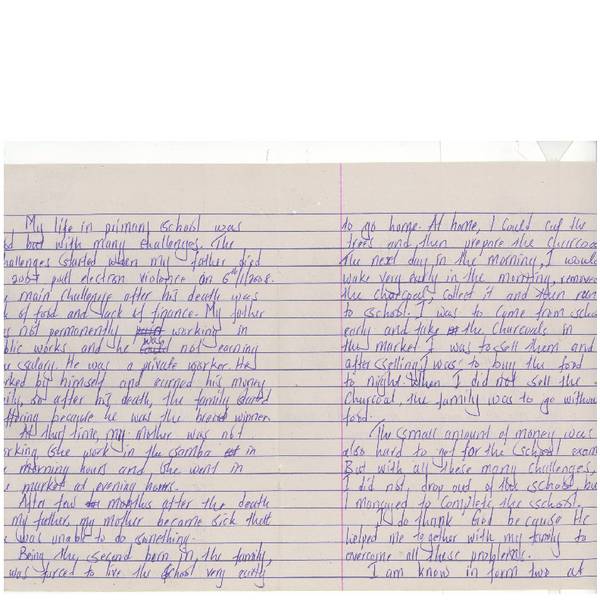 My life in primary school was
but with many challenges. The
hallenges started when my father died
2007 pull electron violence on 6th/1/2008.
main challenge after his death was
of food and lack of finance. My father
s not permanently working in
blic works and he was not earning
salary. He was a private worker. He
rked by himself and earned his money
ily, so after his death, the family started
ffering because he was the bread winner.
At that time, my mother was not
rking she work in the samba in
morning hours and she went in
market at evening hours.
After few months after the death
my father, my mother became sick thatt
was unable to do something.
Being the second born in the family,
was forced to live the school very early
to go home. At home, I could cut the
trees and then prepare the charcoa
The next day in the morning, I would
wake very early in the morning, remove
the charcoal, collect it and then run
to sschool. I was to come from schoo
early and take the charcoals in
the market I was to sell them and
after selling I was to buy the food
to night. When I did not sell the
charcoal, the family was to go withou
food.
The small amount of money was
also hard to get for the school exam
But with all these many challenges,
I did not drop out of the school, but
I managed to complete the sschool.
I do thank God because He
helped me together with my family to
overcome all these problems.
I am know in form two at